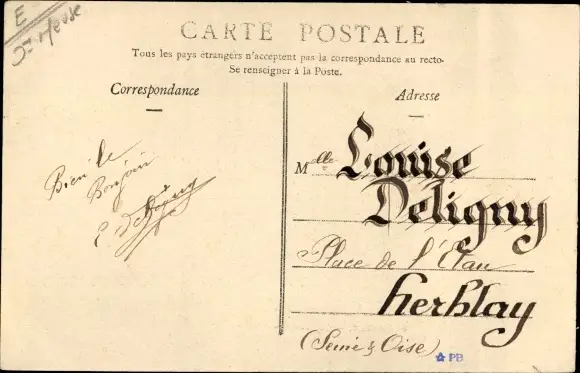 E
CARTE POSTALE
Tous les pays étrangers n'acceptent pas la correspondance au recto.
Se renseigner à la Poste.
Correspondance
Adresse
Bien le
Bonjour
Mlle Louise
Deligny
Place de l'Etau
Herblay
(Seine & Oise)
PB